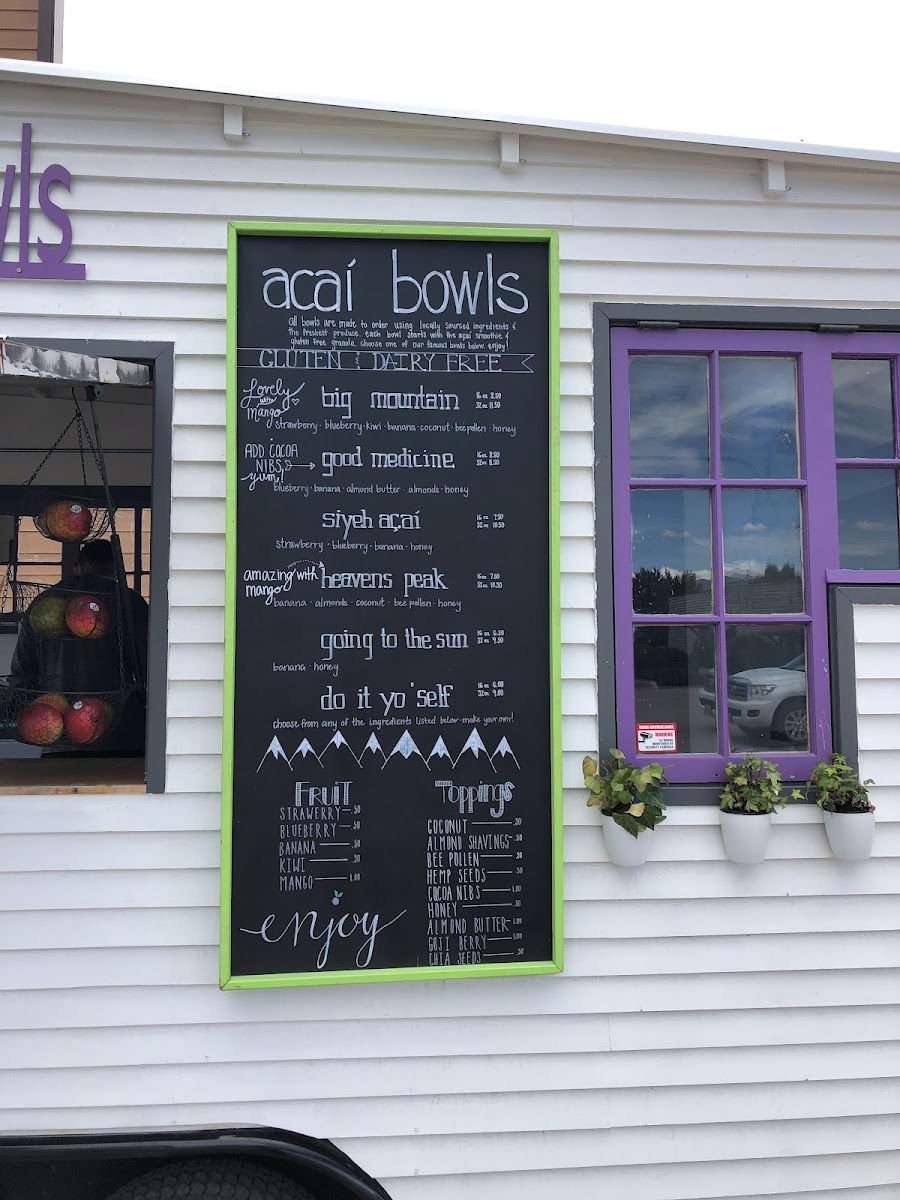 wls
acaí bowls
All bowls are made to order using locally sourced ingredients &
the freshest produce. each bowl starts with the acaí smoothie &
gluten free granola. choose one of our famous bowls below. enjoy!
GLUTEN & DAIRY FREE
Lovely with mango
big mountain
16 oz 8.50
32 oz 11.50
strawberry · blueberry · kiwi · banana · coconut · bee pollen · honey
ADD COCOA NIBS yum!
good medicine
16 oz 8.50
32 oz 11.50
blueberry · banana · almond butter · almonds · honey
siyeh açaí
16 oz 7.50
32 oz 10.50
strawberry · blueberry · banana · honey
amazing with mango
heavens peak
16 oz 7.50
32 oz 10.50
banana · almonds · coconut · bee pollen · honey
going to the sun
16 oz 6.50
32 oz 9.50
banana · honey
do it yo'self
16 oz 6.00
32 oz 9.00
choose from any of the ingredients listed below-make your own!
FRUIT
STRAWERRY .50
BLUEBERRY .50
BANANA .50
KIWI .50
MANGO 1.00
enjoy
Toppings
COCONUT .50
ALMOND SHAVINGS .50
BEE POLLEN .50
HEMP SEEDS .50
COCOA NIBS 1.00
HONEY .50
ALMOND BUTTER 1.00
GOJI BERRY 1.00
CHIA SEEDS .50
WARNING